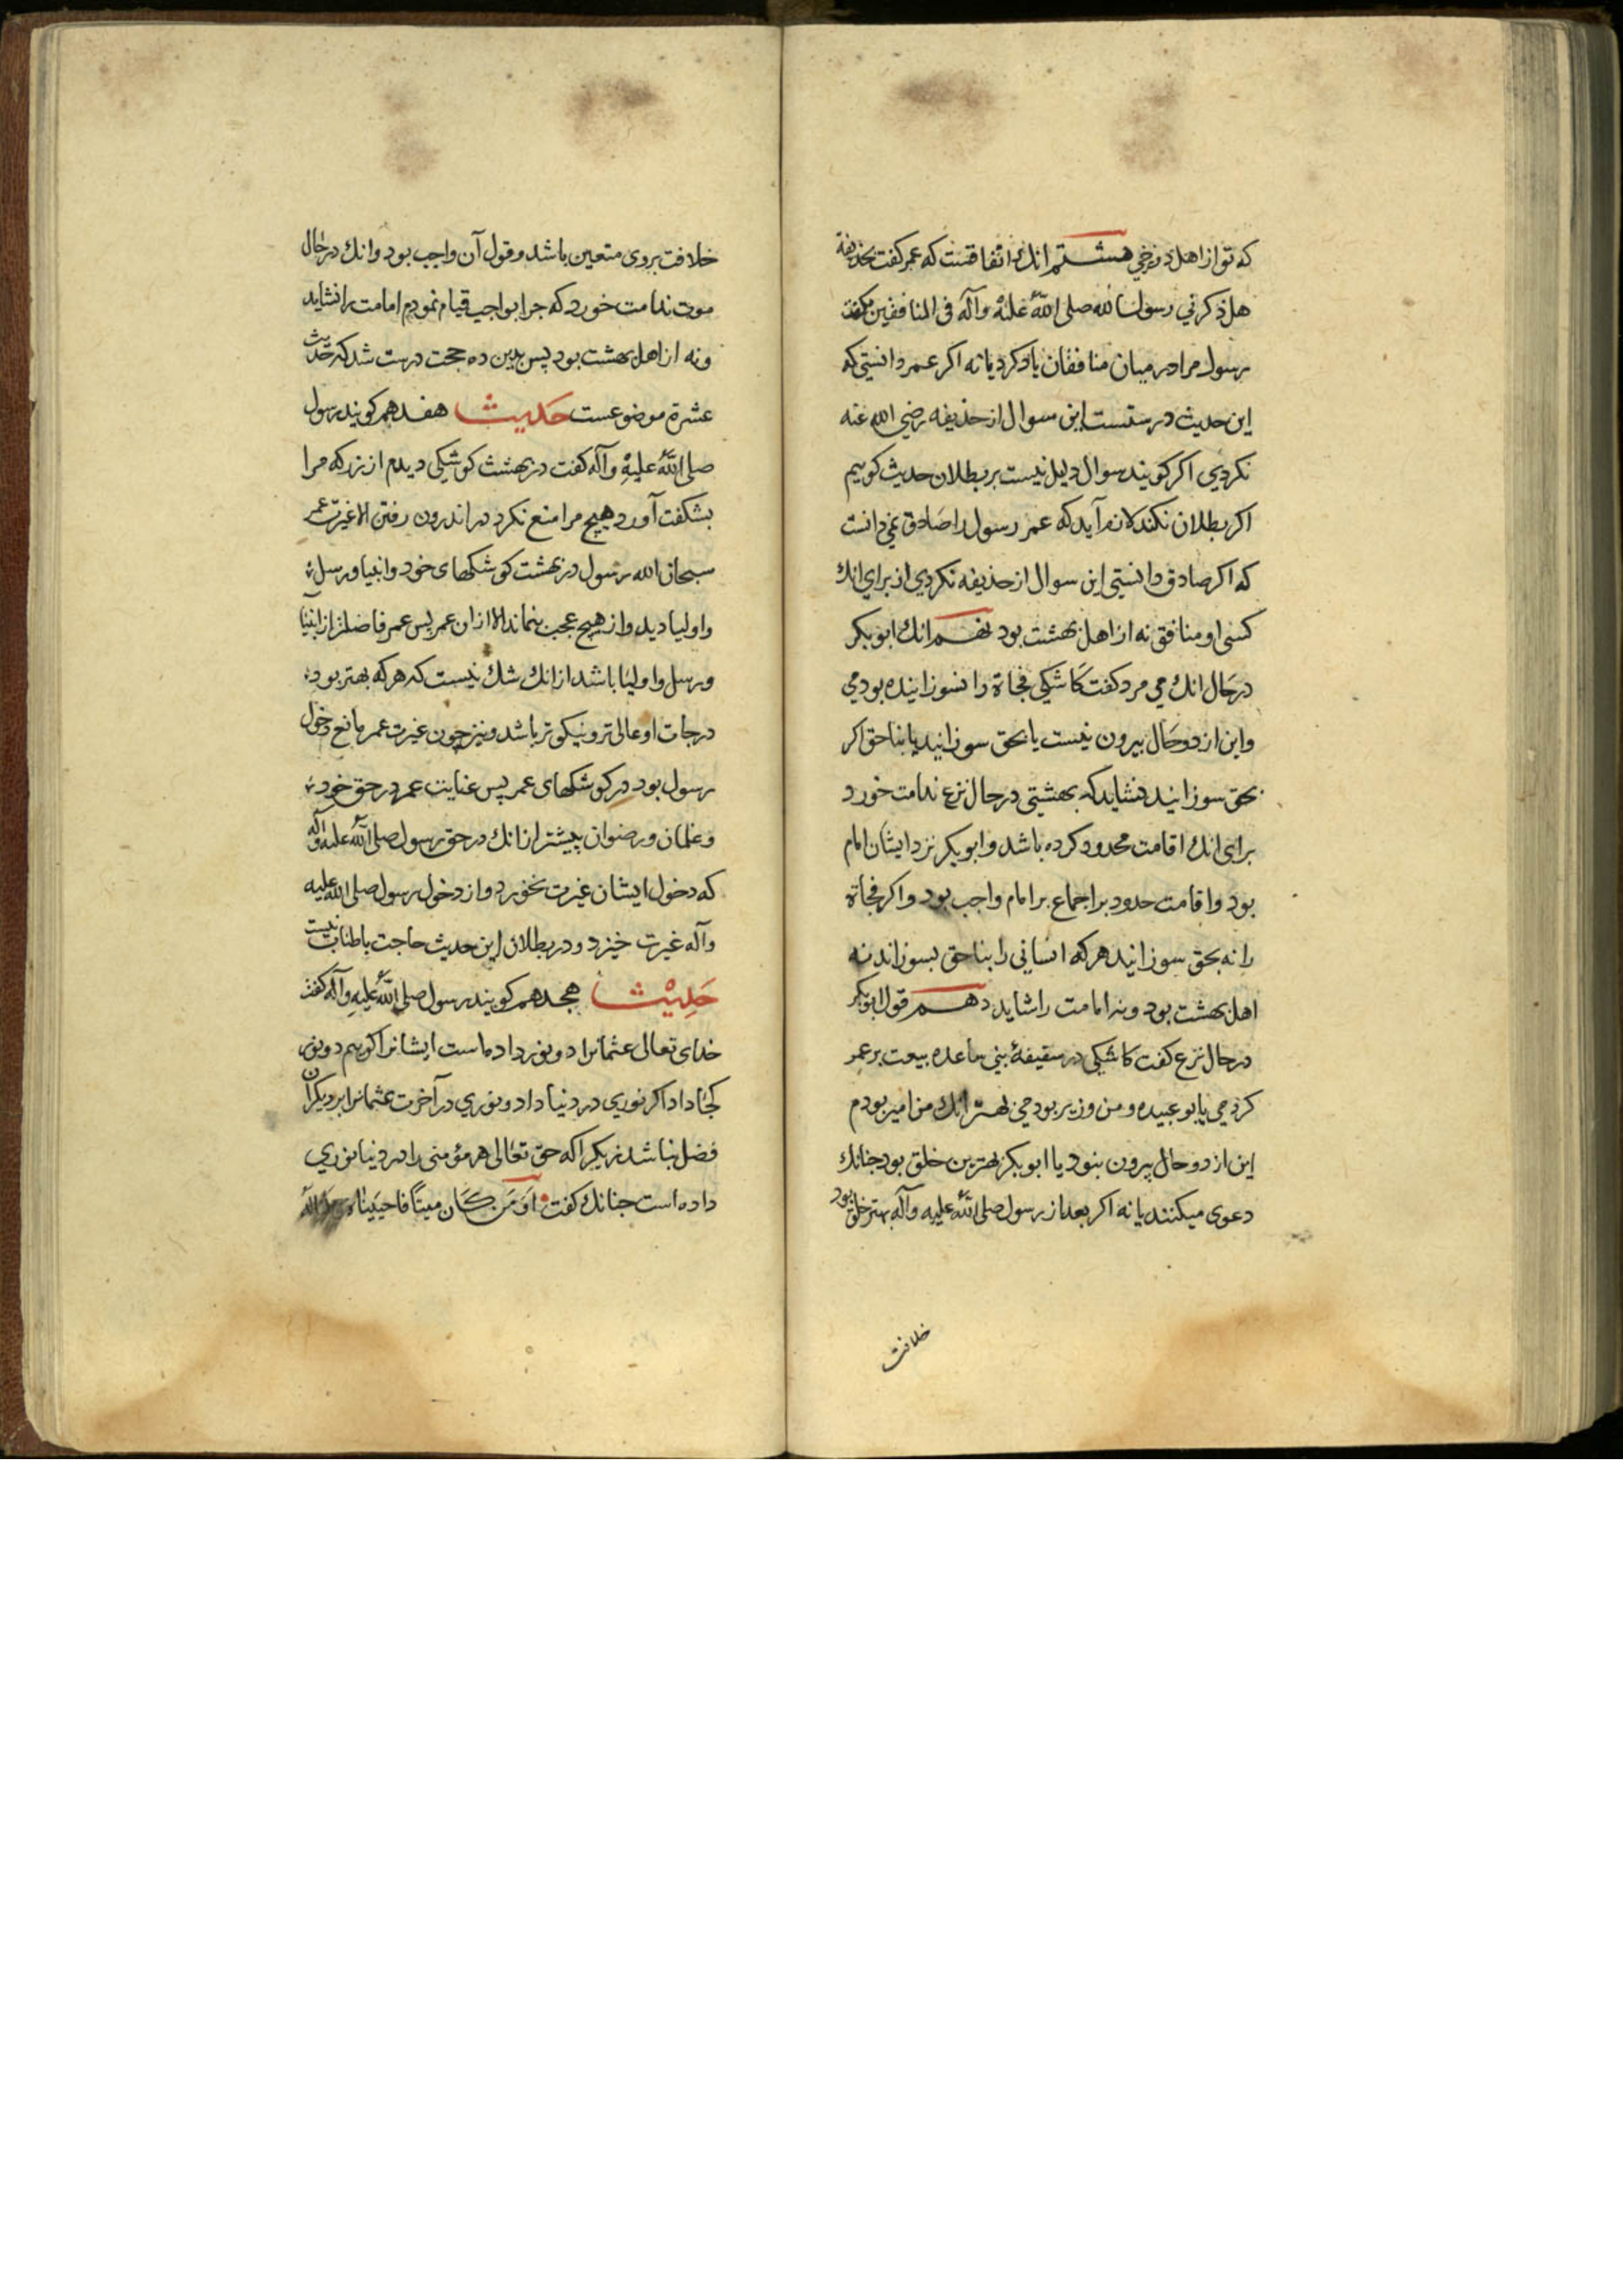 که تو از اهل دوزخي هشتم انك اتفاقست که عمر کفت بحذیفة
هل ذکرني رسول الله صلی الله علیه وآله فی المنافقین کفت
رسول مرا در میان منافقان یاد کرد یا نه اکر عمر دانستی که
این حدیث درستست این سوال از حذیفه رضي الله عنه
نکردي اکر کویند سوال دلیل نیست بر بطلان حدیث کوییم
اکر بطلان نکند لازم آید که عمر رسول را صادق نمي دانست
که اکر صادق دانستی این سوال از حذیفه نکردي از براي انك
کسی او منافق نه از اهل بهشت بود نهم انك ابوبکر
در حال انك مي مرد کفت کاشکی فجاة را نسوزانیده بودمي
واین از دو حال بیرون نیست یا بحق سوزانید یا بناحق اکر
بحق سوزانید نشاید که بهشتی در حال نزع ندامت خورد
برای انك اقامت محدود کرده باشد وابوبکر نزد ایشان امام
بود واقامت حدود بر اجماع بر امام واجب بود واکر فجاة
را نه بحق سوزانید هر که انسانی را بناحق بسوزاند نه
اهل بهشت بود ونه امامت را شاید دهم قول ابوبکر
در حال نزع کفت کاشکی در سقیفۀ بني ساعده بیعت بر عمر
کردمي یا بو عبیده ومن وزیر بودمي بهتر انك من امیر بودم
این از دو حال بیرون نبود یا ابوبکر بهترین خلق بود جنانك
دعوی میکنند یا نه اکر بعد از رسول صلی الله علیه وآله بهتر خلق بود
خلافت
خلافت بروی متعین باشد وقول آن واجب بود وانك در حال
موت ندامت خورد که جرا بواجب قیام نمودم امامت را نشاید
ونه از اهل بهشت بود پس بدین ده حجت درست شد که حدیث
عشرة موضوعست حدیث هفدهم کویند رسول
صلی الله علیه وآله کفت در بهشت کوشکی دیدم از زر که مرا
بشکفت آورد هیچ مرا منع نکرد در اندرون رفتن الا غیرت عمر
سبحان الله رسول در بهشت کوشکهای خود وانبیا ورسل
واولیا دید واز هیچ عجب نماند الا از ان عمر پس عمر فاضلتر از انبیا
ورسل واولیا باشد از انك شك نیست که هر که بهتر بود
درجات او عالی تر ونیکوتر باشد ونیز چون غیرت عمر مانع دخول
رسول بود در کوشکهای عمر پس عنایت عمر در حق خود
وغلمان ورضوان بیشتر از انك در حق رسول صلی الله علیه وآله
که دخول ایشان غیرت نخورد واز دخول رسول صلی الله علیه
وآله غیرت خیزد ودر بطلان این حدیث حاجت باطناب نیست
حدیث هجدهم کویند رسول صلی الله علیه وآله کفت
خدای تعالی عثمانرا دو نور داده است ایشانرا کوییم دو نور
کجا داد اکر نوري در دنیا داد ونوري در آخرت عثمانرا بر دیکران
فضل نباشد زیکرا که حق تعالی هر مؤمنی را در دنیا نوري
داده است جنانك کفت اومن کان میتا فاحییناه